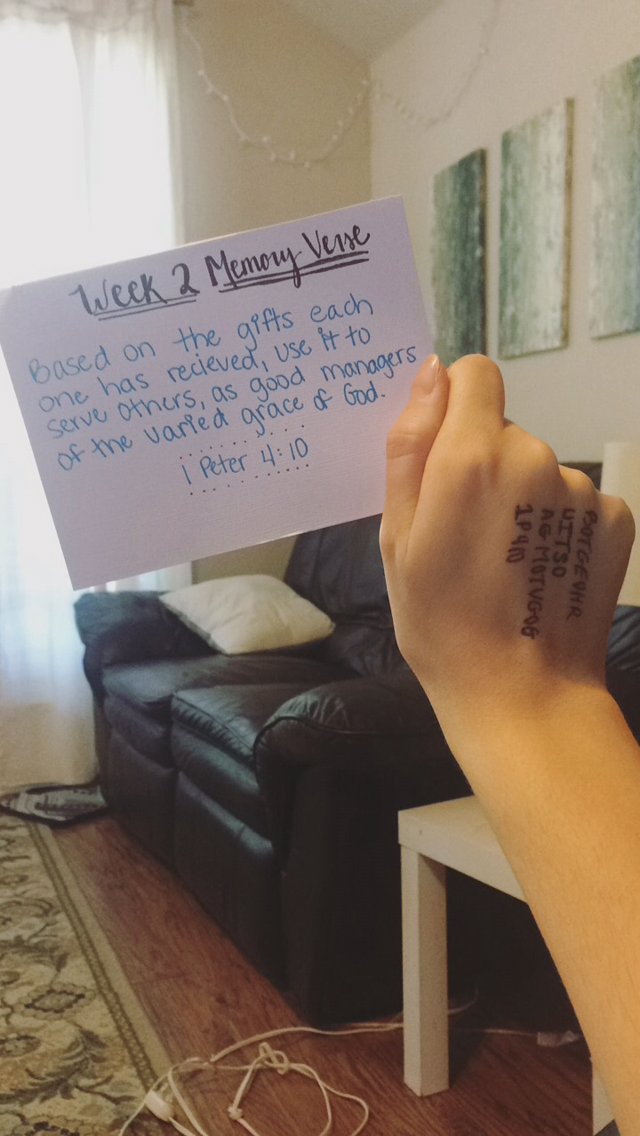 Week 2 Memory Verse
Based on the gifts each
one has recieved, use it to
serve others, as good managers
of the varied grace of God.
1 Peter 4:10
BOTGEOHR
UITSO
AGMOTVGOG
1P410